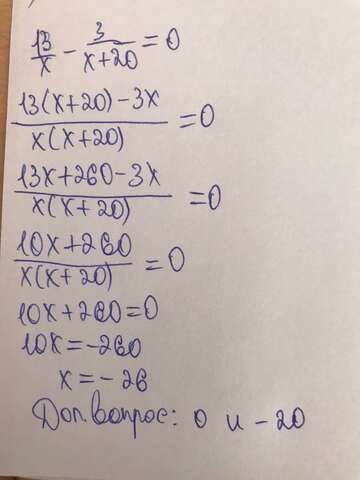 13/x - 3/(x+20) = 0
(13(x+20) - 3x)/(x(x+20)) = 0
(13x+260-3x)/(x(x+20)) = 0
(10x+260)/(x(x+20)) = 0
10x+260=0
10x=-260
x=-26
Доп. вопрос: 0 и -20